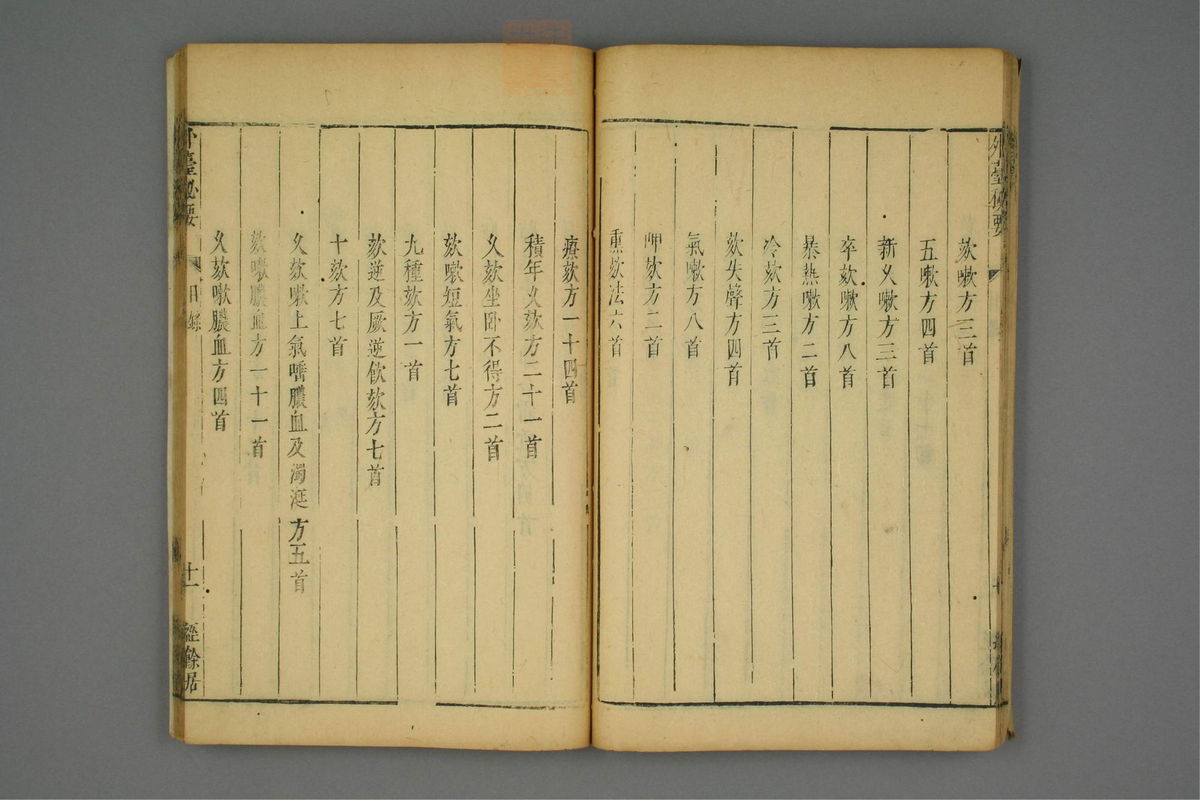 外臺秘要
欬嗽方三首
五嗽方四首
新久嗽方三首
卒欬嗽方八首
暴熱嗽方二首
冷欬方三首
欬失聲方四首
氣嗽方八首
呷欬方二首
熏欬法六首
療欬方一十四首
積年久欬方二十一首
久欬坐卧不得方二首
欬嗽短氣方七首
九種欬方一首
欬逆及厥逆飲欬方七首
十欬方七首
久欬嗽上氣唾膿血及濁涎方五首
欬嗽膿血方一十一首
久欬嗽膿血方四首
外臺秘要 目錄 十一 經餘居